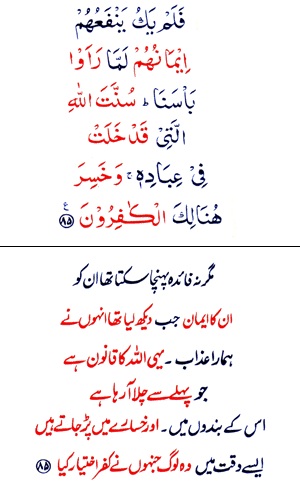 فَلَمْ يَكُ يَنْفَعُهُمْ
اِيْمَانُهُمْ لَمَّا رَاَوْا
بَاْسَنَا ؕ سُنَّتَ اللّٰهِ
الَّتِيْ قَدْ خَلَتْ
فِيْ عِبَادِهٖ ۚ وَخَسِرَ
هُنَالِكَ الْكٰفِرُوْنَ ﴿۸۵﴾ ع
مگر نہ فائدہ پہنچا سکتا تھا ان کو
ان کا ایمان جب دیکھ لیا تھا انہوں نے
ہمارا عذاب ۔ یہی اللہ کا قانون ہے
جو پہلے سے چلا آ رہا ہے
اس کے بندوں میں۔ اور خسارے میں پڑ جاتے ہیں
ایسے وقت میں وہ لوگ جنہوں نے کفر اختیار کیا ﴿۸۵﴾